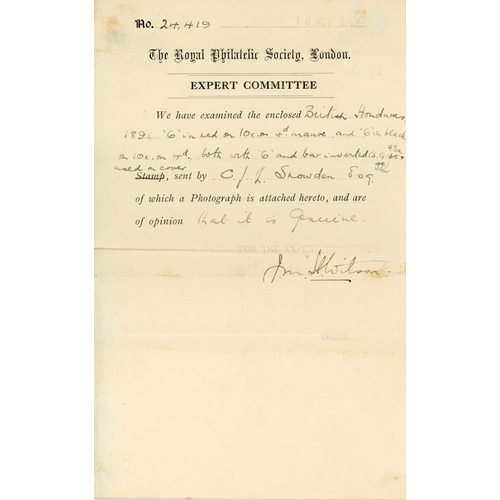 No. 24,419
The Royal Philatelic Society, London.
EXPERT COMMITTEE
We have examined the enclosed British Honduras
1891, "6" in red on 10c. on 4d mauve, and "6" in black
on 10c. on 4d, both with "6" and bar inverted (S.G. 43a
used on cover
Stamp, sent by C. J. L. Snowden Esq.
of which a Photograph is attached hereto, and are
of opinion that it is Genuine.
FOR THE EXPERT COMMITTEE